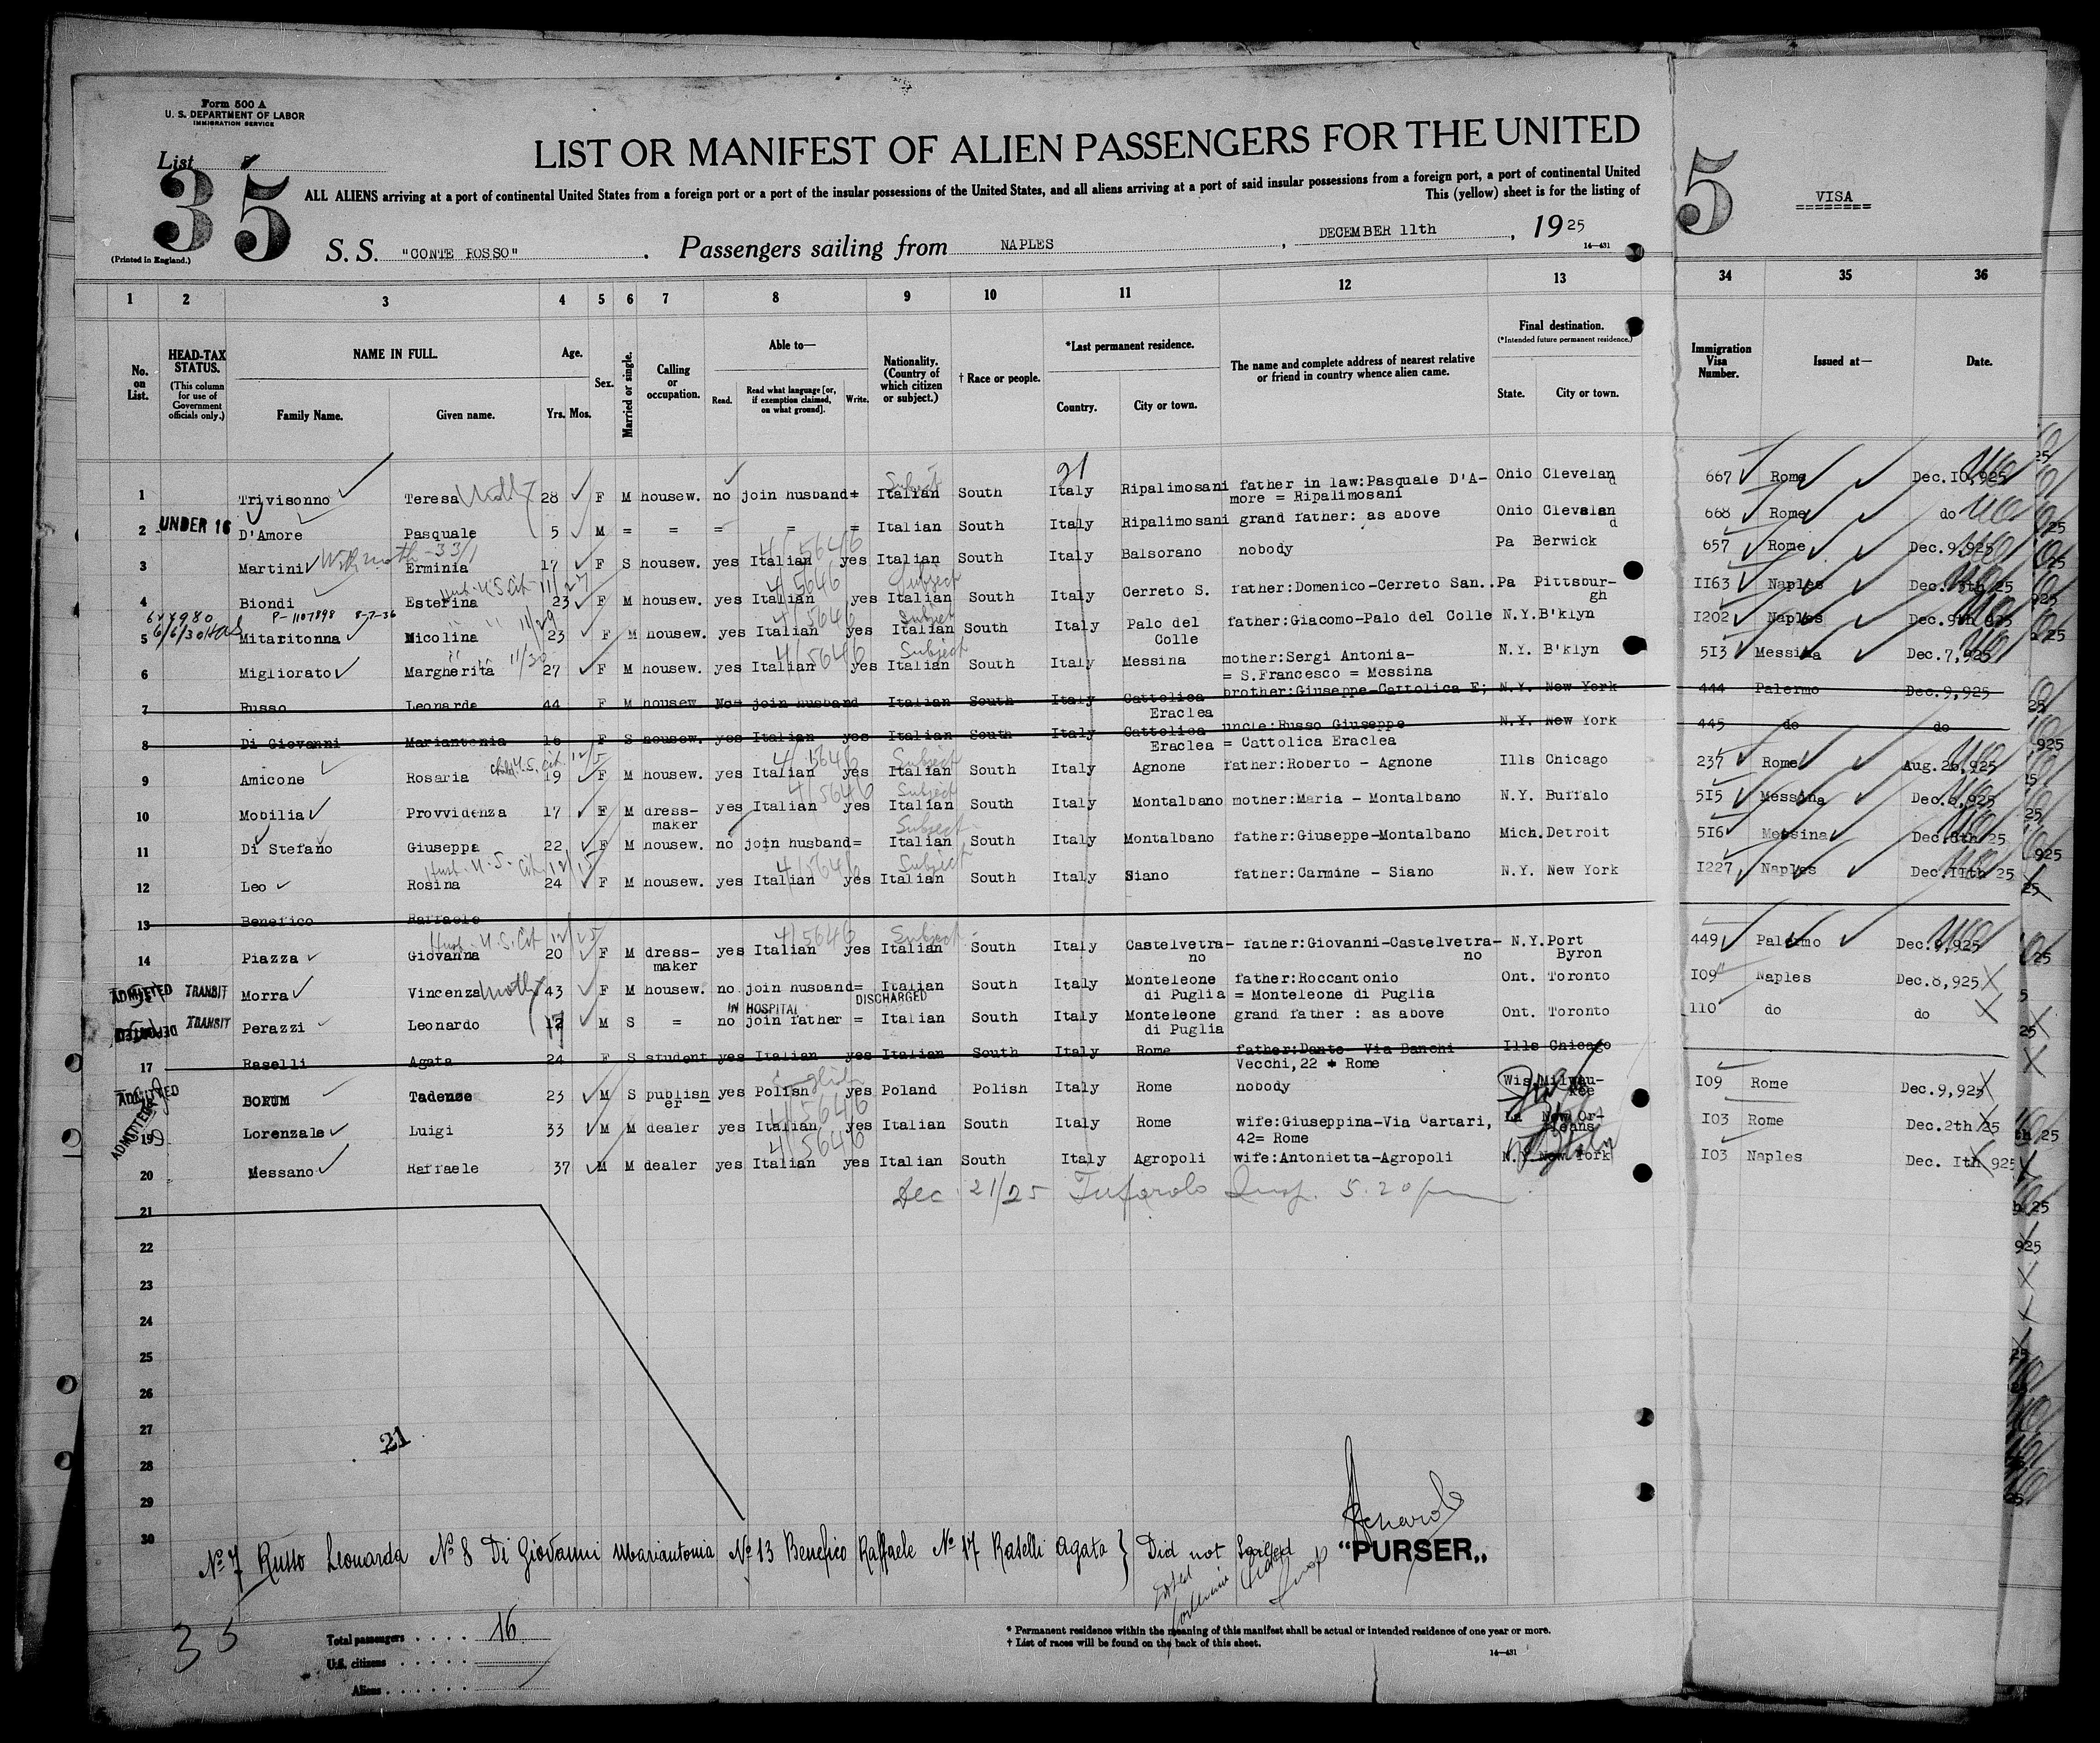 Form 500 A
U. S. DEPARTMENT OF LABOR
IMMIGRATION SERVICE
List
35
(Printed in England.)
LIST OR MANIFEST OF ALIEN PASSENGERS FOR THE UNITED
ALL ALIENS arriving at a port of continental United States from a foreign port or a port of the insular possessions of the United States, and all aliens arriving at a port of said insular possessions from a foreign port, a port of continental United
This (yellow) sheet is for the listing of
S. S. "CONTE ROSSO" . Passengers sailing from NAPLES , DECEMBER 11th , 1925
14—431
5 VISA
1 2 3 4 5 6 7 8 9 10 11 12 13 34 35 36
No. on List.
HEAD-TAX STATUS.
(This column for use of Government officials only.)
NAME IN FULL.
Family Name. Given name.
Age.
Yrs. Mos.
Sex.
Married or single.
Calling or occupation.
Able to—
Read. Read what language [or, if exemption claimed, on what ground]. Write.
Nationality. (Country of which citizen or subject.)
† Race or people.
*Last permanent residence.
Country. City or town.
The name and complete address of nearest relative or friend in country whence alien came.
Final destination.
(*Intended future permanent residence.)
State. City or town.
Immigration Visa Number.
Issued at—
Date.
1 Trivisonno Teresa 28 F M housew. no join husband= Italian South Italy Ripalimosani father in law:Pasquale D'A-more = Ripalimosani Ohio Cleveland 667 Rome Dec.IO,925
2 UNDER 16 D'Amore Pasquale 5 M = = = = = Italian South Italy Ripalimosani grand father: as above Ohio Cleveland 668 Rome do
3 Martini Erminia 17 F S housew. yes Italian yes Italian South Italy Balsorano nobody Pa Berwick 657 Rome Dec.9,925
4 Biondi Esterina 23 F M housew. yes Italian yes Italian South Italy Cerreto S. father:Domenico-Cerreto San.. Pa Pittsbur-gh II63 Naples Dec. 25
P-1107898 8-7-36
5 Mitaritonna Nicolina 23 F M housew. yes Italian yes Italian South Italy Palo del Colle father:Giacomo-Palo del Colle N.Y. B'klyn I202 Naples Dec.9th 925
6 Migliorato Margherita 27 F M housew. yes Italian yes Italian South Italy Messina mother:Sergi Antonia- = S.Francesco = Messina N.Y. B'klyn 5I3 Messina Dec.7,925
7 Russo Leonarda 44 F M housew. No= join husband Italian South Italy Cattolica Eraclea brother:Giuseppe-Cattolica E; N.Y. New York 444 Palermo Dec.9,925
8 Di Giovanni Mariantonia 16 F S housew. yes Italian yes Italian South Italy Cattolica Eraclea uncle:Russo Giuseppe = Cattolica Eraclea N.Y. New York 445 do do
9 Amicone Rosaria 19 F M housew. yes Italian yes Italian South Italy Agnone father:Roberto - Agnone Ills Chicago 237 Rome Aug.26,925
10 Mobilia Provvidenza 17 F M dress-maker yes Italian yes Italian South Italy Montalbano mother:Maria - Montalbano N.Y. Buffalo 5I5 Messina Dec.8,925
11 Di Stefano Giuseppa 22 F M housew. no join husband= Italian South Italy Montalbano father:Giuseppe-Montalbano Mich. Detroit 5I6 Messina Dec.8th 25
12 Leo Rosina 24 F M housew. yes Italian yes Italian South Italy Siano father:Carmine - Siano N.Y. New York I227 Naples Dec.IIth 25
13 Benefico Raffaele
14 Piazza Giovanna 20 F M dress-maker yes Italian yes Italian South Italy Castelvetra-no father:Giovanni-Castelvetra-no N.Y. Port Byron 449 Palermo Dec.9,925
ADMITTED TRANSIT Morra Vincenza 43 F M housew. no join husband= Italian South Italy Monteleone di Puglia father:Roccantonio = Monteleone di Puglia Ont. Toronto I09 Naples Dec.8,925
IN HOSPITAL DISCHARGED
TRANSIT Perazzi Leonardo M S = no join father = Italian South Italy Monteleone di Puglia grand father : as above Ont. Toronto 110 do do
17 Raselli Agata 24 F S student yes Italian yes Italian South Italy Rome father:Dante Via Banchi Vecchi,22 * Rome Ills Chicago
ADMITTED BORUM 23 M S publish er yes Polish yes Poland Polish Italy Rome nobody Wis Milwau-kee I09 Rome Dec.9,925
ADMITTED 19 Lorenzale Luigi 33 M M dealer yes Italian yes Italian South Italy Rome wife:Giuseppina-Via Cartari, 42= Rome La New Or-leans I03 Rome Dec.2th 25
20 Messano Raffaele 37 M M dealer yes Italian yes Italian South Italy Agropoli wife:Antonietta-Agropoli N.Y. New York I03 Naples Dec. Ith 925
Dec 21/25 Insp. 5.20 pm
21
22
23
24
25
26
27
28
29
30
21
No 7 Russo Leonarda No 8 Di Giovanni Mariantonia No 13 Benefico Raffaele No 17 Raselli Agata } Did not Sailed
"PURSER„
35
Total passengers . . . . 16
U.S. citizens . . . . . .
Aliens . . . . . .
* Permanent residence within the meaning of this manifest shall be actual or intended residence of one year or more.
† List of races will be found on the back of this sheet.
14—431